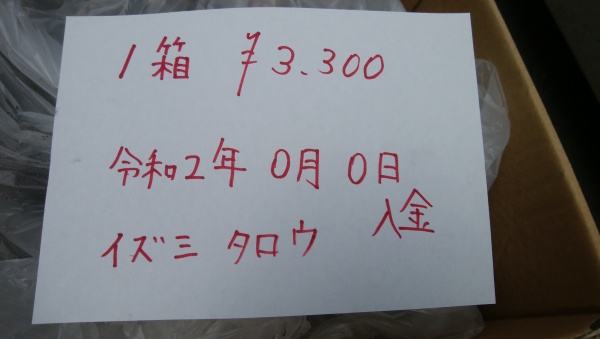 1箱 ¥3.300
令和2年 0月 0日
入金
イズミ タロウ